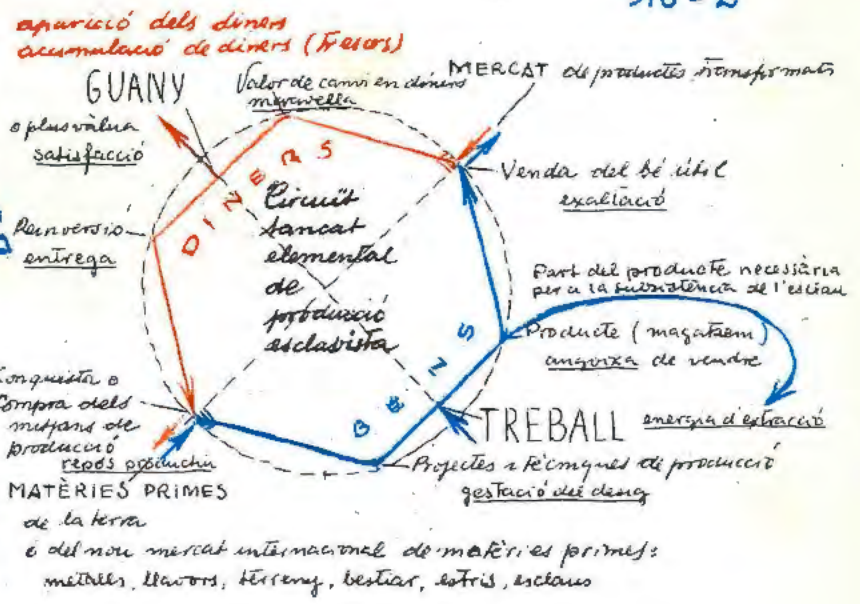 aparició dels diners
acumulació de diners (Tresors)
GUANY
o plusvàlua
satisfacció
Valor de canvi en diners
meravella
MERCAT de productes transformats
Venda del bé útil
exaltació
Reinversió
entrega
DINERS
Circuit
tancat
elemental
de
producció
esclavista
Part del producte necessària
per a la subsistència de l'esclau
Producte (magatzem)
angoixa de vendre
BENS
TREBALL
energia d'extracció
Projectes i tècniques de producció
gestació del desig
Conquista o
Compra dels
mitjans de
producció
repòs productiu
MATÈRIES PRIMES
de la terra
o del nou mercat internacional de matèries primes:
metalls, llavors, terreny, bestiar, estris, esclaus